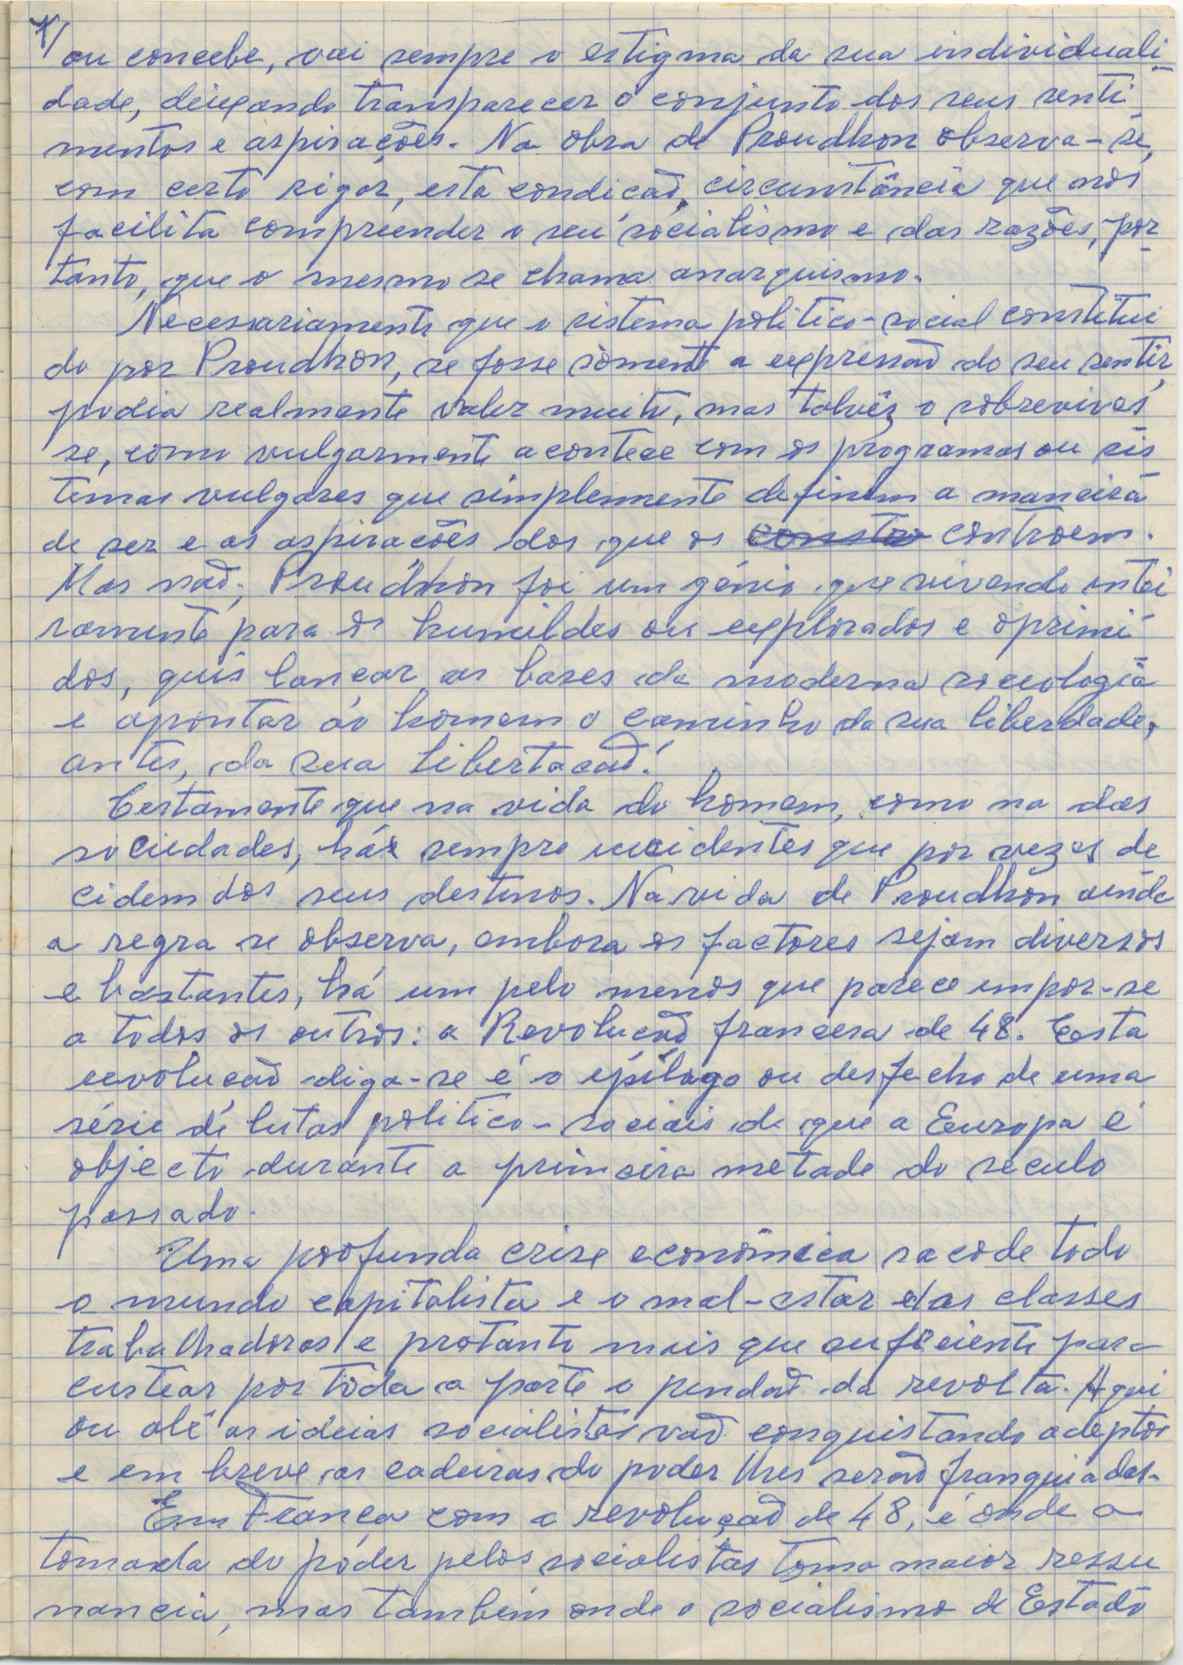 ou concebe, vai sempre o estigma da sua individuali
dade, deixando transparecer o conjunto dos seus senti
mentos e aspirações. Na obra de Proudhon observa-se,
com certo rigor, esta condição, circunstância que nos
facilita compreender o seu socialismo e das razões, por
tanto, que o mesmo se chama anarquismo.
Necessariamente que o sistema politico-social constitui
do por Proudhon, se fosse sòmente a expressão do seu sentir,
podia realmente valer muito, mas talvês o sobrevives
se, como vulgarmente acontece com os programas ou sis
temas vulgares que simplesmente definem a maneira
de ser e as aspirações dos que os constro controem.
Mas não; Proudhon foi um génio que vivendo intei
ramente para os humildes ou explorados e oprimi
dos, quis lançar as bases da moderna sociologia
e apontar ao homem o caminho da sua liberdade,
antes, da sua libertação!
Certamente que na vida do homem, como na das
sociedades, há sempre incidentes que por vezes de
cidem dos seus destinos. Na vida de Proudhon ainda
a regra se observa, embora os factores sejam diversos
e bastantes, há um pelo menos que parece impor-se
a todos os outros: a Revolução francesa de 48. Esta
revolução diga-se é o epílogo ou desfecho de uma
série de lutas politico-sociais de que a Europa é
objecto durante a primeira metade do seculo
passado.
Uma profunda crise económica sacode todo
o mundo capitalista e o mal-estar das classes
trabalhadoras é protanto mais que suficiente para
custear por toda a parte o pendão da revolta. Aqui
ou alí as ideias socialistas vão conquistando adeptos
e em breve as cadeiras do poder lhes serão franquiadas.
Em França com a revolução de 48, é onde a
tomada do poder pelos socialistas toma maior ressu
nancia, mas também onde o socialismo de Estado